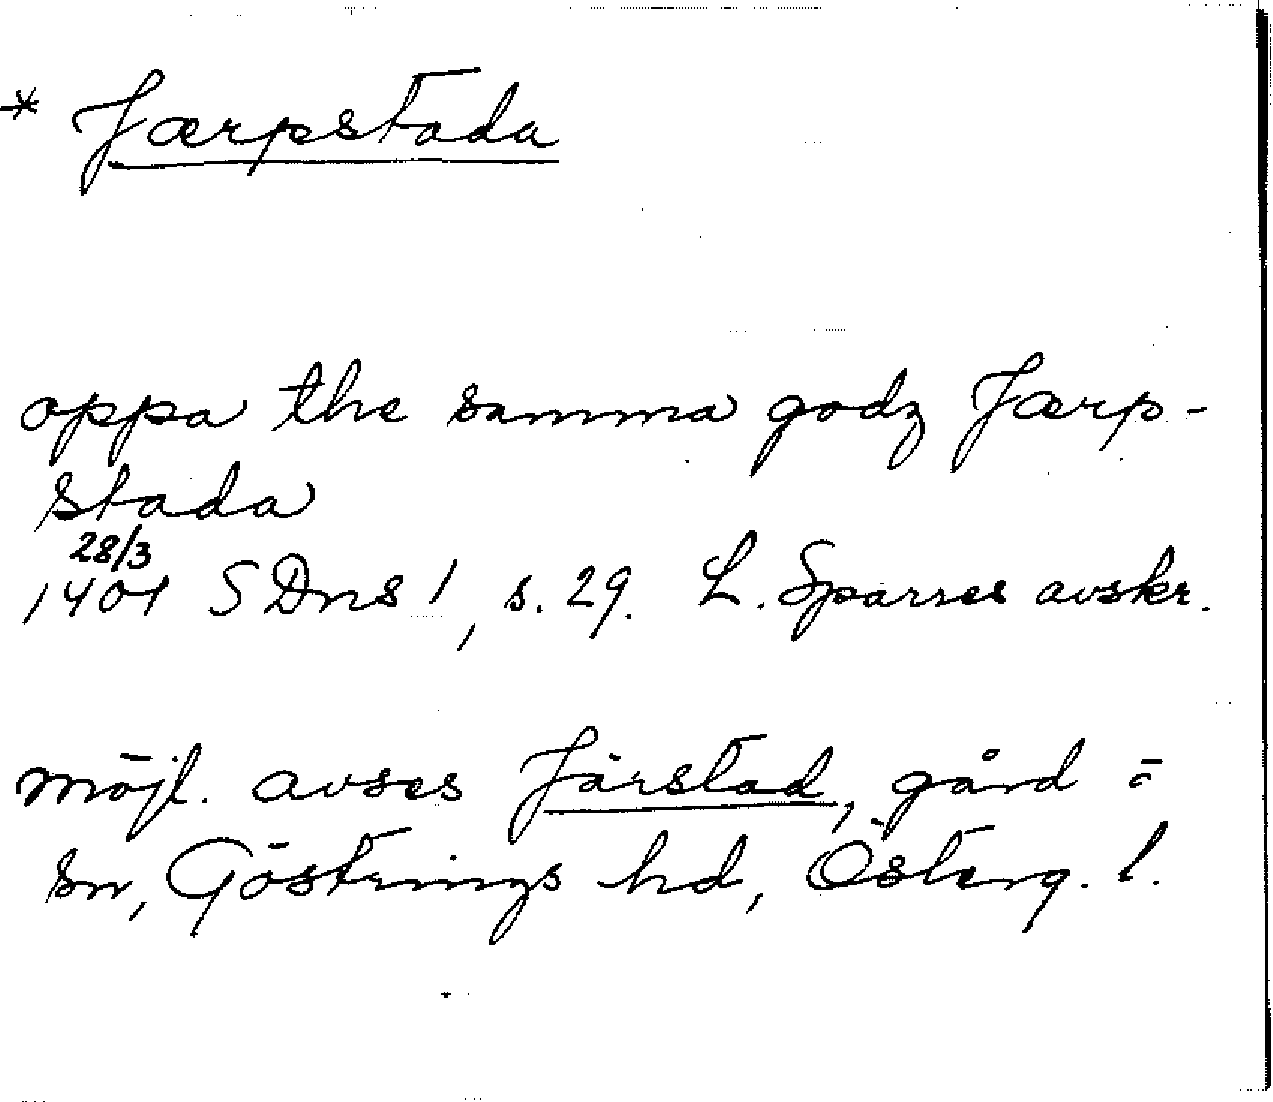 * Jærpstada
oppa the samma godz Jærp-
stada
28/3
1401 SDns 1, s. 29. L. Sparres avskr.
möjl. avses Järstad, gård o
sn, Göstrings hd, Österg. l.